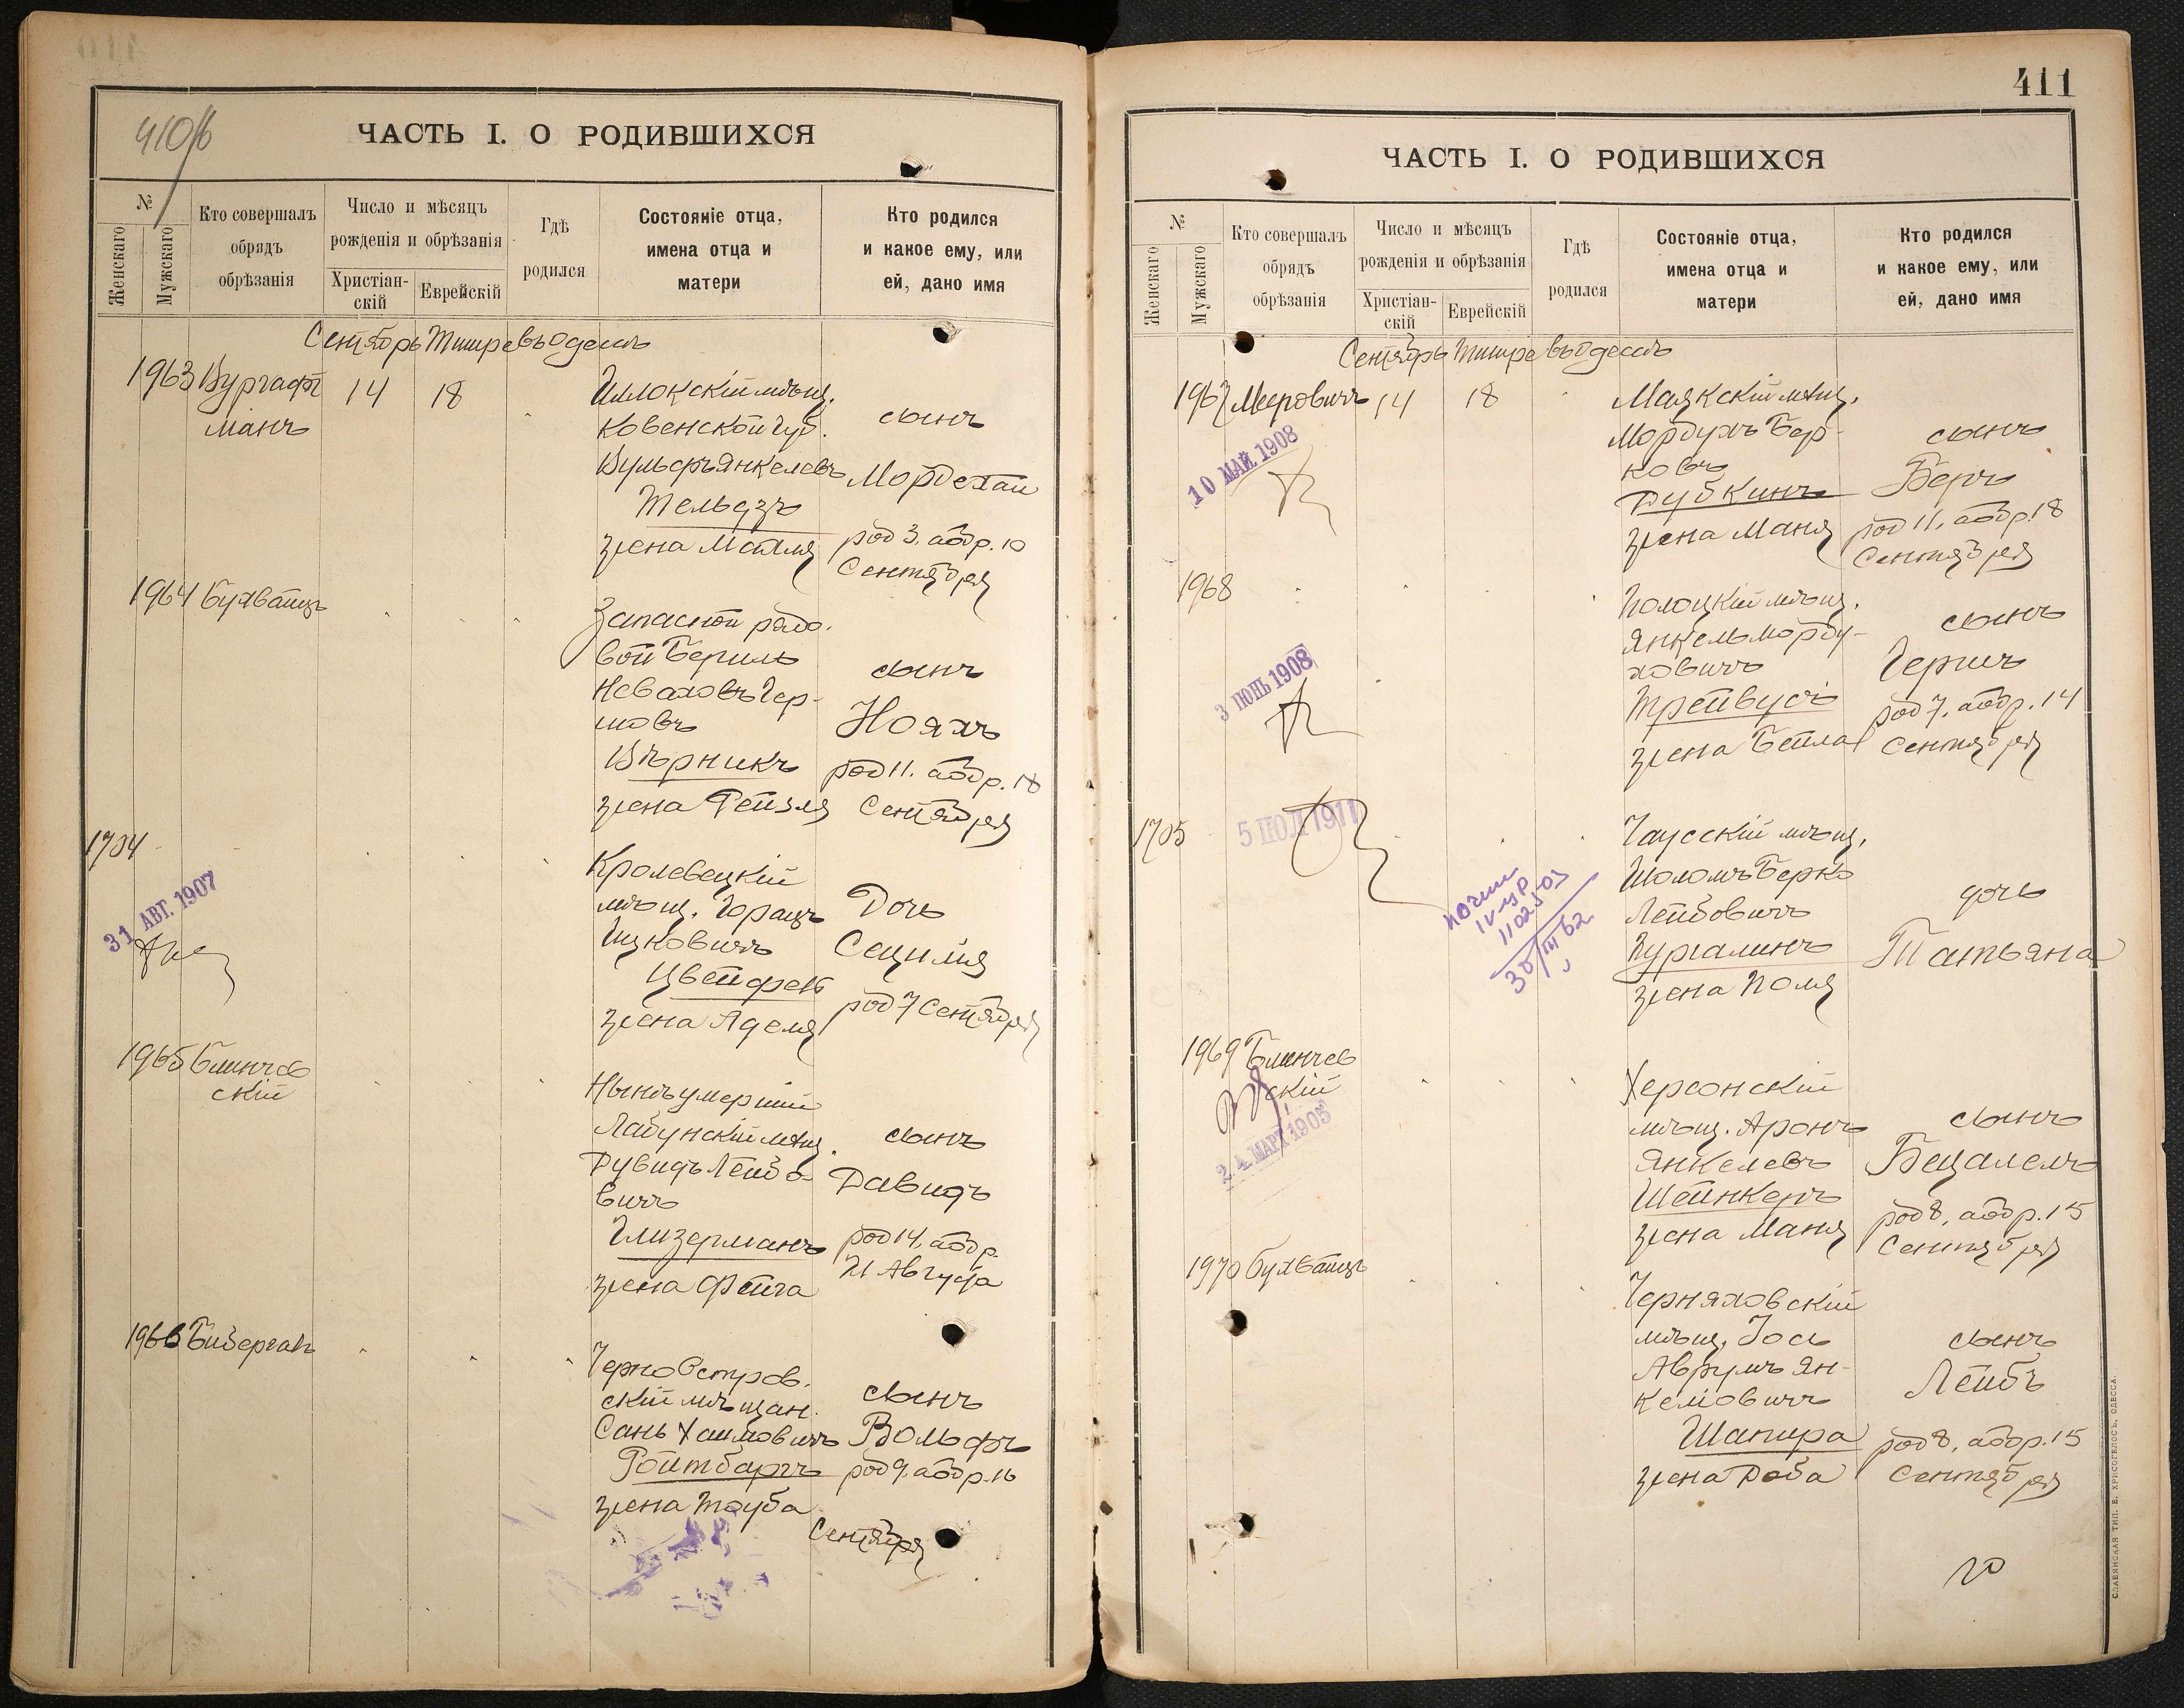 410б
ЧАСТЬ I. О РОДИВШИХСЯ
№
Женскаго
Мужскаго
Кто совершалъ
обрядъ
обрѣзанія
Число и мѣсяцъ
рожденія и обрѣзанія
Христіан-
скій
Еврейскій
Гдѣ
родился
Состояніе отца,
имена отца и
матери
Кто родился
и какое ему, или
ей, дано имя
Сентябрь Тишре въ Одессѣ
1963 Вургафт
манъ
14
18
Иллокскій мѣщ.
Ковенской губ.
Вульфъ Янкелевъ
Тельдзъ
жена Матля
сынъ
Мордехаи
род 3. аобр. 10
Сентября
1964 Бухбаиндъ
Запасной рядо-
вой Бериль
Неваховъ Гер-
шовъ
Вѣрникъ
жена Рейзля
сынъ
Нояхъ
род 11. аобр. 18
Сентября
1704
31 АВГ. 1907
Кролевецкій
мѣщ. Горацъ
Ицковичъ
Цвейфель
жена Аделя
Дочь
Сецилія
род 7 Сентября
1965 Блинчев
скій
Нынѣ умершій
Лабунскій мѣщ.
Дувидъ Лейбо-
вичъ
Глизерманъ
жена Фейга
сынъ
Давидъ
род 14, аобр.
21 Августа
1966 Бизергал
ЧерноОстров-
скій мѣщан.
Сань Хаимовичъ
Ройтбаргъ
жена Тауба
сынъ
Вольфъ
род 9. аобр. 16
Сентября
411
ЧАСТЬ I. О РОДИВШИХСЯ
№
Женскаго
Мужскаго
Кто совершалъ
обрядъ
обрѣзанія
Число и мѣсяцъ
рожденія и обрѣзанія
Христіан-
скій
Еврейскій
Гдѣ
родился
Состояніе отца,
имена отца и
матери
Кто родился
и какое ему, или
ей, дано имя
Сентябрь Тишре въ Одессѣ
1967 Мееровичъ
14
18
10 МАЙ 1908
Маякскій мѣщ.
Мордухъ Бер-
ковъ
Дубкинъ
жена Маня
сынъ
Беръ
род 11. аобр. 18
Сентября
1968
3 ІЮНЬ 1908
Полоцкій мѣщ.
Янкель Морду-
ховичъ
Трейвусъ
жена Бейла
сынъ
Гершъ
род 7. аобр. 14
Сентября
1705
5 ІЮЛ 1911
30/III 62
Чаусскій мѣщ.
Шоломъ Берко
Лейбовичъ
Кургалинъ
жена Поля
дочь
Татьяна
1969 Блинчев
скій
24 МАРТ 1905
Херсонскій
мѣщ. Аронъ
Янкелевъ
Шейнкеръ
жена Маня
сынъ
Бецалелъ
род 8, аобр. 15
Сентября
1970 Бухбаиндъ
Черняховскій
мѣщ. Іось
Аврумъ Ян-
келіовичъ
Шапира
жена Доба
сынъ
Лейбъ
род 8, аобр. 15
Сентября
СЛАВЯНСКАЯ ТИП. Е. ХРИСОГЕЛОСЪ, ОДЕССА.